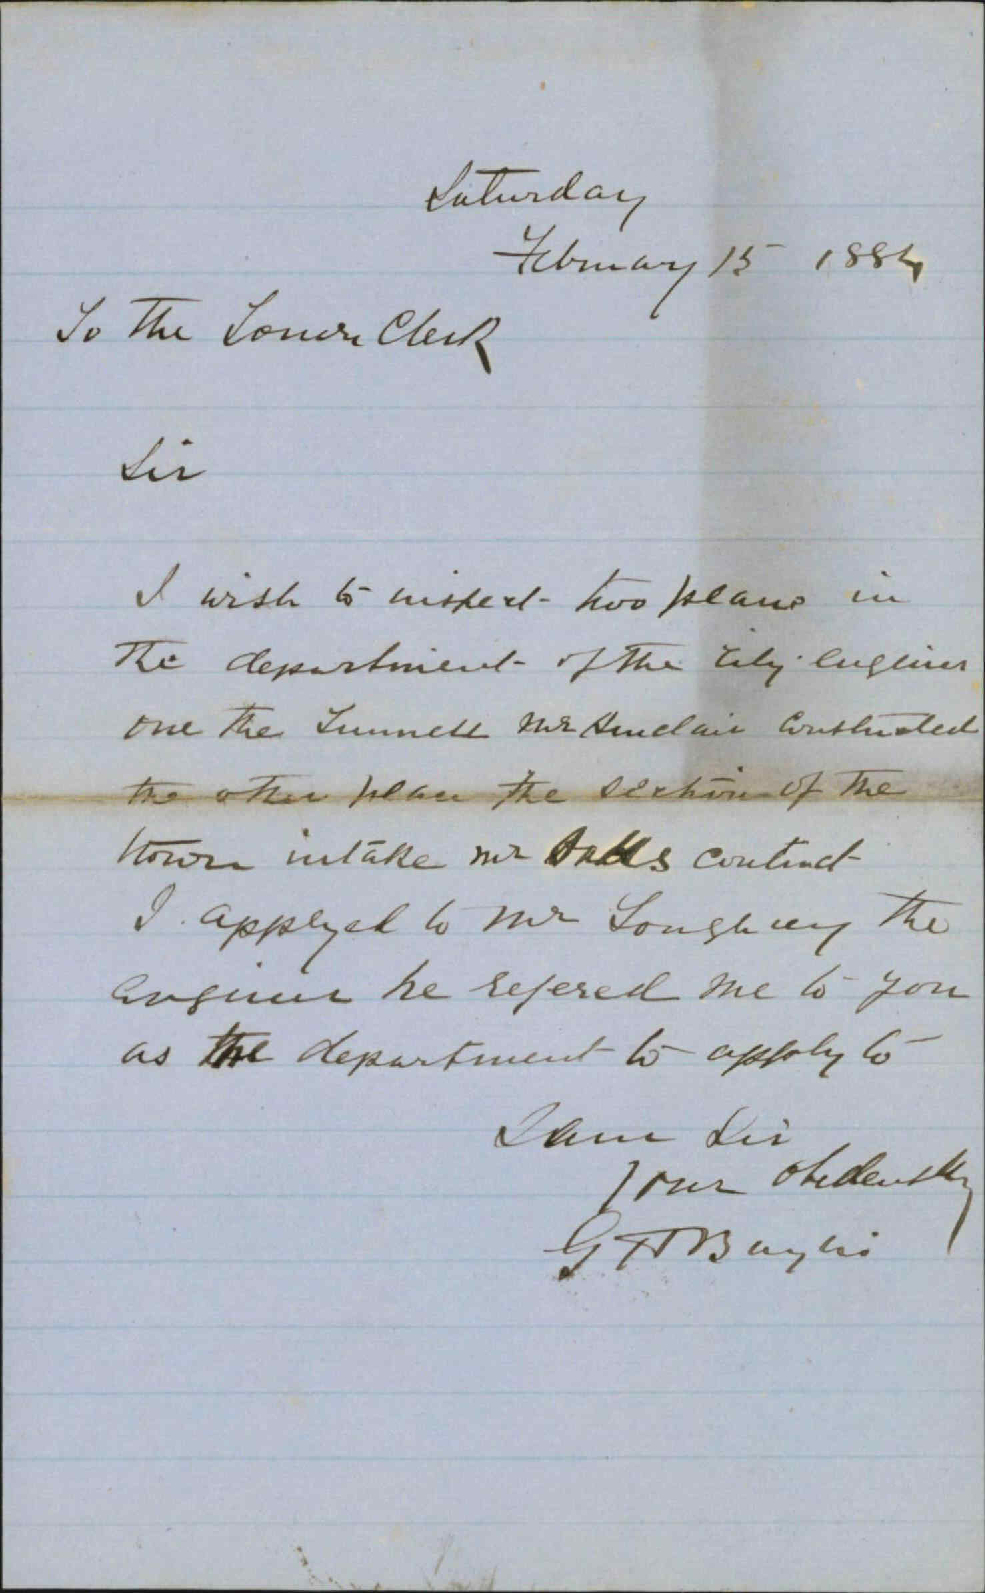 Saturday
February 15 1884
To the Town Clerk
Sir
I wish to inspect two plans in
the department of the City Engineer
one the Tunnell Mr Sinclair constructed
the other plan the section of the
town intake Mr contract
I applyed to Mr the
Engineer he refered me to you
as the department to apply to
I am Sir
Your Obedently
G H Baylis